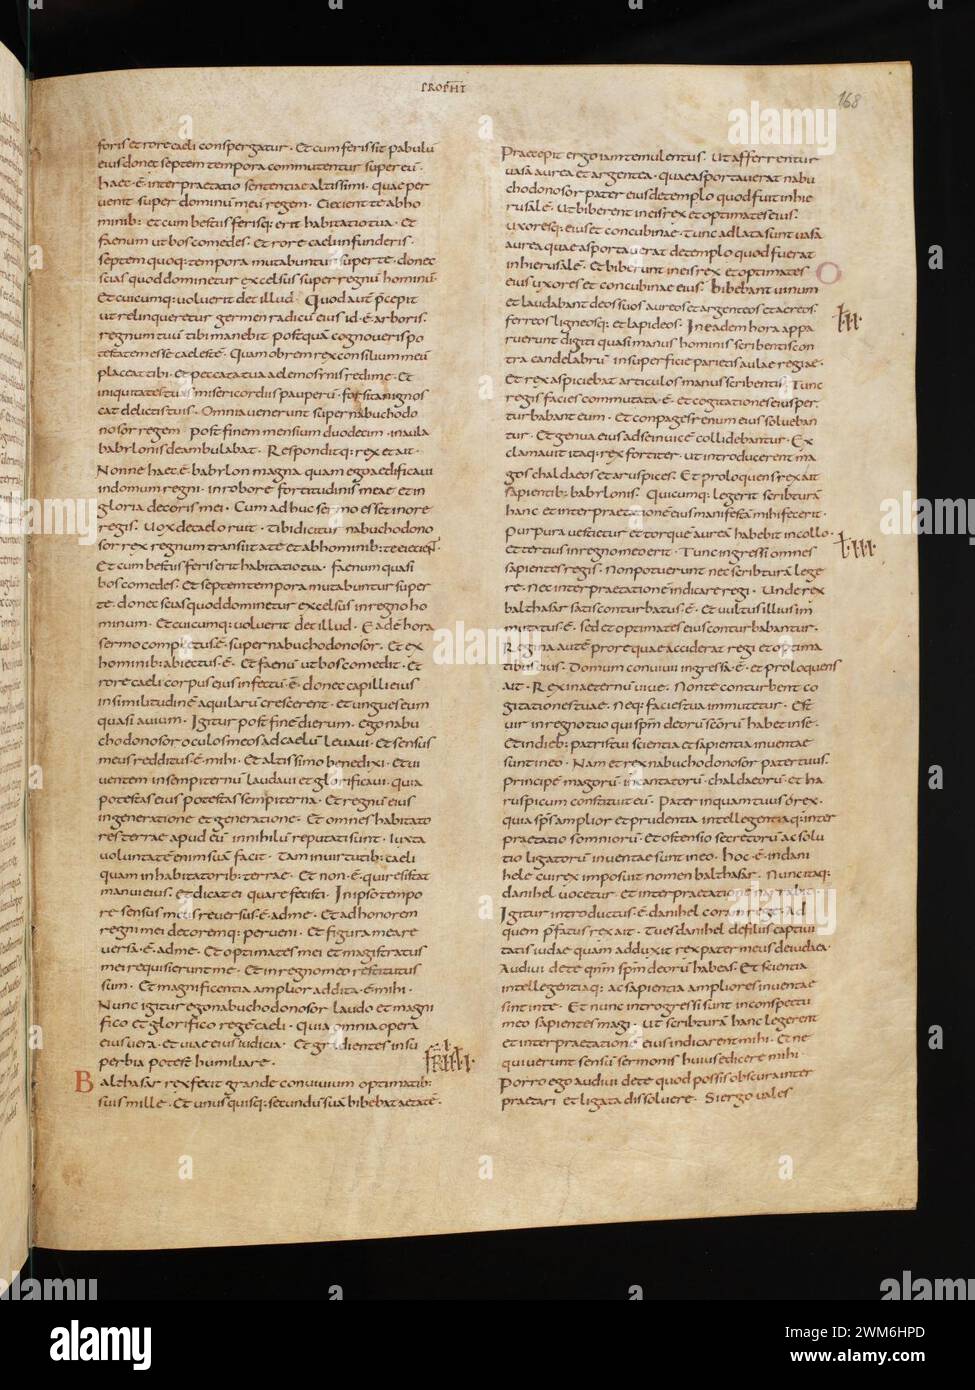 PROPHI
168
foris et rore caeli conspergatur. Et cum feris sit pabulū
eius donec septem tempora commutentur super eū.
Haec ē interpraetatio sententiae altissimi. quae per
venit super dominū meū regem. Eicient te ab ho
minib: et cum bestiis ferisq: erit habitatio tua. Et
faenum ut bos comedes. Et rore caeli infunderis.
septem quoq: tempora mutabuntur super te. donec
scias quod dominetur excelsus super regnū hominū.
Et cuicumq: voluerit det illud. Quod autē p̄cepit
ut relinqueretur germen radicū eius id ē arboris.
regnum tuū tibi manebit. Postquā cognoveris po
testatem esse caelestē. Quam obrem rex consilium meū
placeat tibi. Et peccata tua aelemosinis redime. Et
iniquitates tuas misericordiis pauperū. forsitan ignos
cat delictis tuis. Omnia venerunt super nabuchodo
nosor regem. Post finem mensium duodecim. in aula
babylonis deambulabat. Responditq: rex et ait.
Nonne haec ē babylon magna quam ego aedificavi
in domum regni. in robore fortitudinis meae et in
gloria decoris mei. Cum adhuc sermo esset in ore
regis. Vox de caelo ruit. tibi dicitur nabuchodono
sor rex regnum transiit a te et ab hominib: te eicient.
Et cum bestiis feris erit habitatio tua. faenum quasi
bos comedes. Et septem tempora mutabuntur super
te. donec scias quod dominetur excelsus in regno ho
minum. Et cuicumq: voluerit det illud. Eadē hora
sermo completus ē super nabuchodonosor. Et ex
hominib: abiectus ē. Et faenū ut bos comedit. Et
rore caeli corpus eius infectū ē. donec capilli eius
in similitudinē aquilarū crescerent. et ungues eum
quasi avium. Igitur post finē dierum. Ego nabu
chodonosor oculos meos ad caelū levavi. Et sensus
meus redditus ē mihi. Et altissimo benedixi. Et vi
ventem in sempiternū laudavi et glorificavi. quia
potestas eius potestas sempiterna. Et regnū eius
in generatione et generatione. Et omnes habitato
res terrae apud eū in nihilū reputati sunt. Iuxta
voluntatē enim suā facit. Tam in virtutib: caeli
quam in habitatorib: terrae. Et non ē qui resistat
manui eius. et dicat ei quare fecisti. In ipso tempo
re sensus meus reversus ē ad me. Et ad honorem
regni mei decoremq: perveni. Et figura mea re
versa ē ad me. Et optimates mei et magistratus
mei requisierunt me. Et in regno meo restitutus
sum. Et magnificentia amplior addita ē mihi.
Nunc igitur ego nabuchodonosor laudo et magni
fico et glorifico regē caeli. Quia omnia opera
eius vera. et viae eius iudicia. Et gradientes in su
perbia potest humiliare.
Balthasar rex fecit grande convivium optimatib:
suis mille. Et unusquisq: secundū suā bibebat aetatē.
Praecepit ergo iam temulentus. Ut afferrentur
vasa aurea et argentea. quae asportaverat nabu
chodonosor pater eius de templo quod fuit in hie
rusalē. Ut biberent in eis rex et optimates eius.
Uxoresq: eius et concubinae. Tunc adlata sunt vasa
aurea quae asportaverat de templo quod fuerat
in hierusalē. Et biberunt in eis rex et optimates
eius. uxores et concubinae eius. Bibebant vinum
et laudabant deos suos aureos et argenteos et aereos.
ferreos ligneosq: et lapideos. In eadem hora appa
ruerunt digiti quasi manus hominis scribentis con
tra candelabrū in superficie parietis aulae regiae.
Et rex aspiciebat articulos manus scribentis. Tunc
regis facies commutata ē. et cogitationes eius per
turbabant eum. Et conpages renum eius solueban
tur. Et genua eius ad se invicē collidebantur. Ex
clamavit itaq: rex fortiter. ut introducerent ma
gos chaldaeos et aruspices. Et proloquens rex ait
sapientib: babylonis. Quicumq: legerit scripturā
hanc et interpraetationē eius manifestā mihi fecerit.
Purpura vestietur et torquē aureā habebit in collo.
Et tertius in regno meo erit. Tunc ingressi omnes
sapientes regis. Non potuerunt nec scribturā lege
re. Nec interpraetationē indicare regi. Unde rex
balthasar satis conturbatus ē. Et vultus illius im
mutatus ē. sed et optimates eius conturbabantur.
Regina autē pro re quae acciderat regi et optima
tibus eius. Domum convivii ingressa ē. et proloquens
ait. Rex in aeternū vive. Non te conturbent co
gitationes tuae. Neq: facies tua immutetur. Est
vir in regno tuo qui spm̄ deorū scōrū habet in se.
Et in dieb: patris tui scientia et sapientia inventae
sunt in eo. Nam et rex nabuchodonosor pater tuus.
principē magorū. incantatorū. chaldaeorū. et ha
ruspicum constituit eū. Pater inquam tuus o rex.
quia sps̄ amplior et prudentia intellegentiaq: inter
praetatio somniorū. Et ostensio secretorū ac solu
tio ligatorū inventae sunt in eo. Hoc ē in dani
hele cui rex imposuit nomen balthasar. Nunc itaq:
danihel vocetur. et interpraetationē narrabit.
Igitur introductus ē danihel coram rege. Ad
quem p̄fatus rex ait. Tu es danihel de filiis captivi
tatis iudae quam adduxit rex pater meus de iudaea.
Audivi de te qnm̄ spm̄ deorū habeas. Et scientia
intellegentiaq: ac sapientia ampliores inventae
sint in te. Et nunc introgressi sunt in conspectu
meo sapientes magi. Ut scribturā hanc legerent
et interpraetationē eius indicarent mihi. Et ne
quiverunt sensū sermonis huius edicere mihi.
Porro ego audivi de te quod possis obscura inter
praetari et ligata dissolvere. Si ergo vales
alamy
Image ID: 2WM6HPD
www.alamy.com